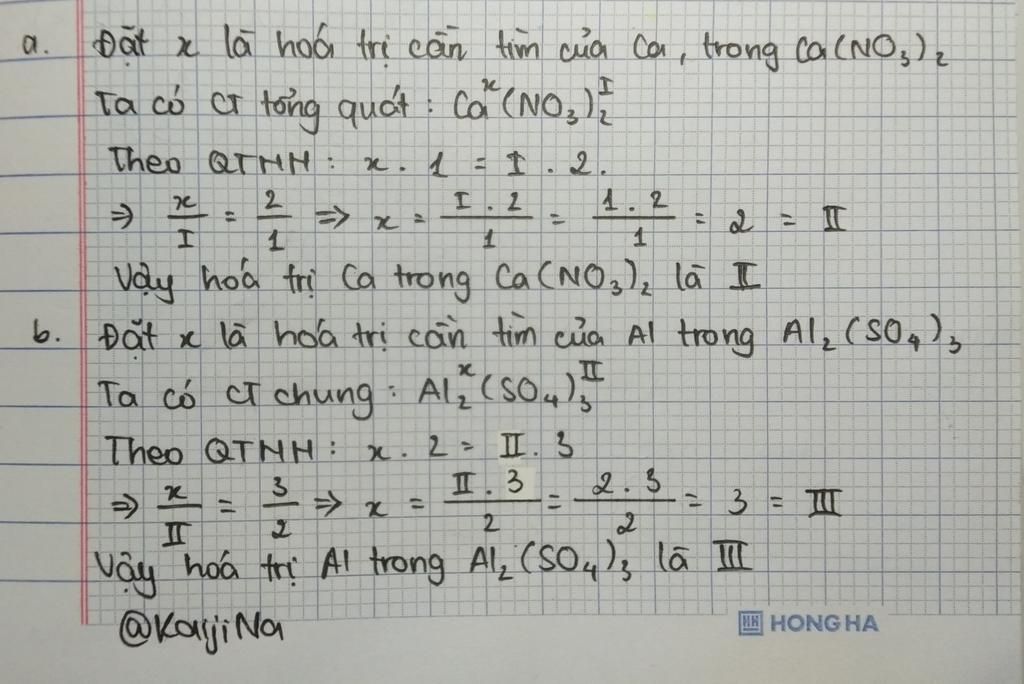 a. Đặt x là hoá trị cần tìm của Ca, trong Ca(NO₃)₂
Ta có CT tổng quát: Caˣ(NO₃)₂ᴵ
Theo QTHH: x . 1 = I . 2.
⇒ x/I = 2/1 ⇒ x = (I . 2)/1 = (1 . 2)/1 = 2 = II
Vậy hoá trị Ca trong Ca(NO₃)₂ là II
b. Đặt x là hoá trị cần tìm của Al trong Al₂(SO₄)₃
Ta có CT chung: Al₂ˣ(SO₄)₃ᴵᴵ
Theo QTHH: x . 2 = II . 3
⇒ x/II = 3/2 ⇒ x = (II . 3)/2 = (2 . 3)/2 = 3 = III
Vậy hoá trị Al trong Al₂(SO₄)₃ là III
@KaijiNa
HH HONG HA